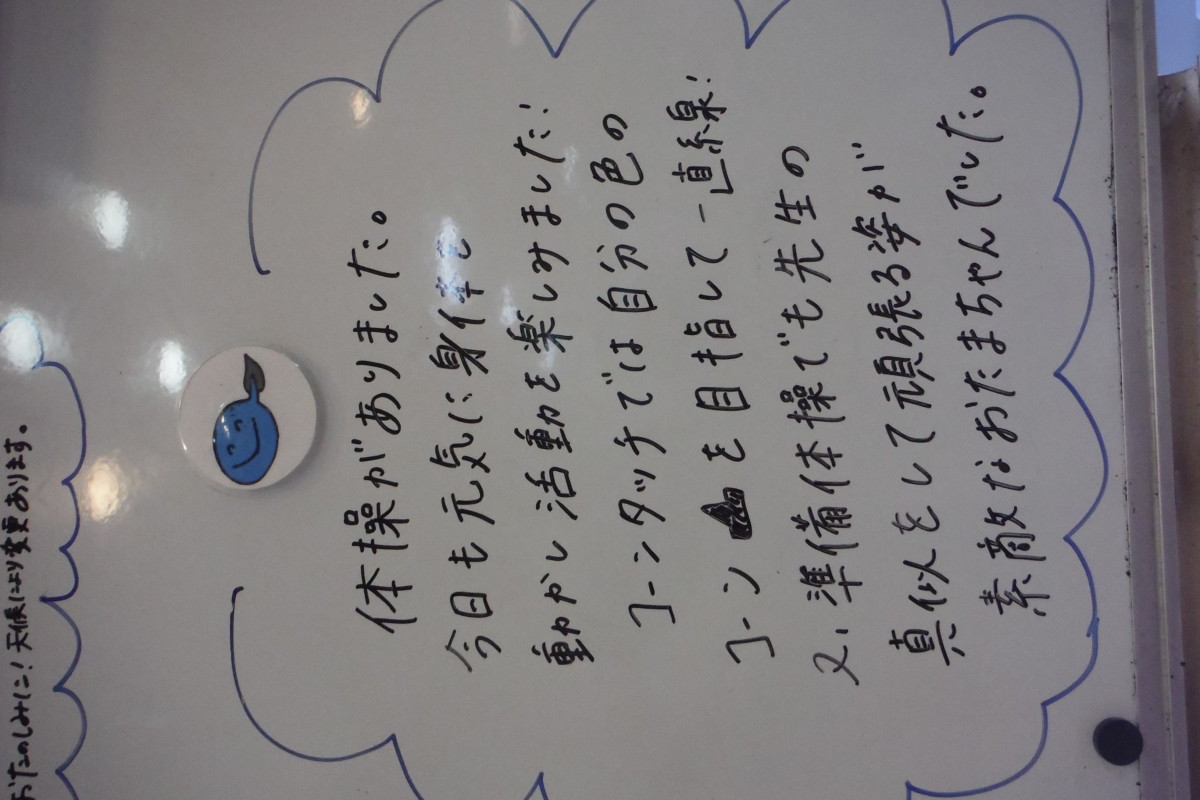 おたのしみに!天候により変更あります。
体操がありました。
今日も元気に身体を
動かし活動を楽しみました!
コーンタッチでは自分の色の
コーンを目指して一直線!
又、準備体操でも先生の
真似をして頑張る姿が
素敵なおたまちゃんでした。